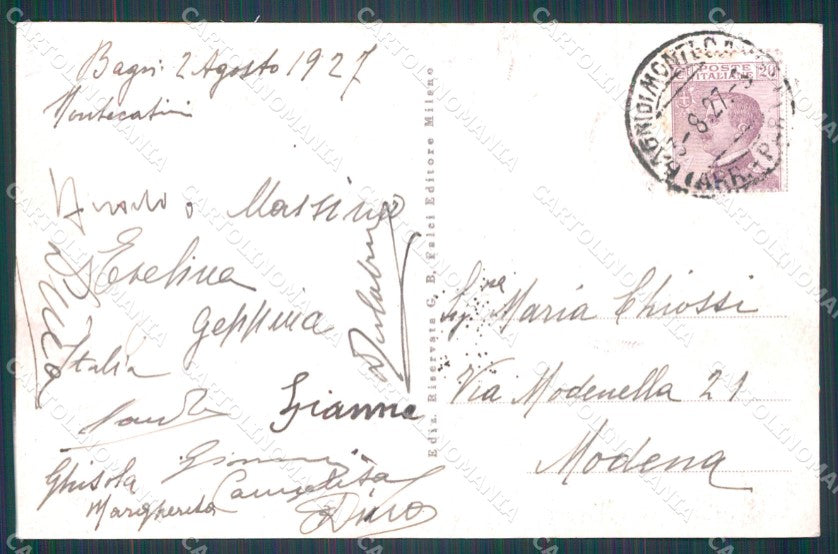 Bagni 2 Agosto 1927
Montecatini
Massimo
Evelina
Geppina
Italia
Gianna
Ghisola
Margherita
Dino
Ediz. Riservata G. B. Falci Editore Milano
POSTE
ITALIANE
20
BAGNI DI MONTECATINI
-8.27.
Sig.na Maria Chiossi
Via Modenella 21
Modena
CARTOLINOMANIA